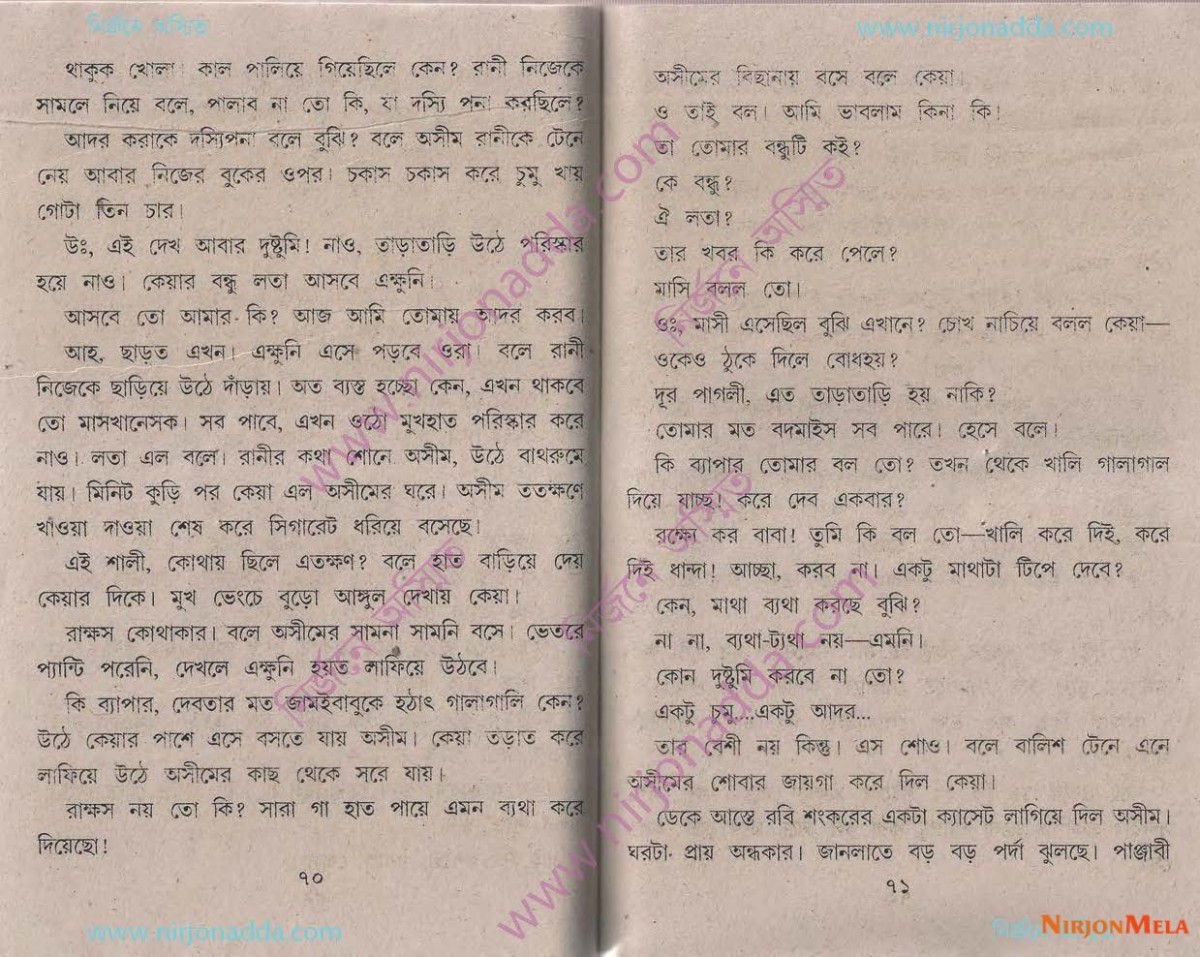 নির্জনে অস্মিত
www.nirjonadda.com
থাকুক খোলা। কাল পালিয়ে গিয়েছিলে কেন? রানী নিজেকে
সামলে নিয়ে বলে, পালাব না তো কি, যা দস্যি পনা করছিলে?
আদর করাকে দস্যিপনা বলে বুঝি? বলে অসীম রানীকে টেনে
নেয় আবার নিজের বুকের ওপর। চকাস চকাস করে চুমু খায়
গোটা তিন চার।
উঃ, এই দেখ আবার দুষ্টুমি! নাও, তাড়াতাড়ি উঠে পরিস্কার
হয়ে নাও। কেয়ার বন্ধু লতা আসবে এক্ষুনি।
আসবে তো আমার কি? আজ আমি তোমায় আদর করব।
আহ, ছাড়ত এখন। এক্ষুনি এসে পড়বে ওরা। বলে রানী
নিজেকে ছাড়িয়ে উঠে দাঁড়ায়। অত ব্যস্ত হচ্ছো কেন, এখন থাকবে
তো মাসখানেসক। সব পাবে, এখন ওঠো মুখহাত পরিস্কার করে
নাও। লতা এল বলে। রানীর কথা শোনে অসীম, উঠে বাথরুমে
যায়। মিনিট কুড়ি পর কেয়া এল অসীমের ঘরে। অসীম ততক্ষণে
খাওয়া দাওয়া শেষ করে সিগারেট ধরিয়ে বসেছে।
এই শালী, কোথায় ছিলে এতক্ষণ? বলে হাত বাড়িয়ে দেয়
কেয়ার দিকে। মুখ ভেংচে বুড়ো আঙ্গুল দেখায় কেয়া।
রাক্ষস কোথাকার। বলে অসীমের সামনা সামনি বসে। ভেতরে
প্যান্টি পরেনি, দেখলে এক্ষুনি হয়ত লাফিয়ে উঠবে।
কি ব্যাপার, দেবতার মত জামাইবাবুকে হঠাৎ গালাগালি কেন?
উঠে কেয়ার পাশে এসে বসতে যায় অসীম। কেয়া তড়াত করে
লাফিয়ে উঠে অসীমের কাছ থেকে সরে যায়।
রাক্ষস নয় তো কি? সারা গা হাত পায়ে এমন ব্যথা করে
দিয়েছো!
৭০
www.nirjonadda.com
অসীমের বিছানায় বসে বলে কেয়া।
ও তাই বল। আমি ভাবলাম কিনা কি!
তা তোমার বন্ধুটি কই?
কে বন্ধু?
ঐ লতা?
তার খবর কি করে পেলে?
মাসি বলল তো।
ওঃ, মাসী এসেছিল বুঝি এখানে? চোখ নাচিয়ে বলল কেয়া—
ওকেও ঠুকে দিলে বোধহয়?
দূর পাগলী, এত তাড়াতাড়ি হয় নাকি?
তোমার মত বদমাইস সব পারে। হেসে বলে।
কি ব্যাপার তোমার বল তো? তখন থেকে খালি গালাগাল
দিয়ে যাচ্ছ! করে দেব একবার?
রক্ষো কর বাবা! তুমি কি বল তো—খালি করে দিই, করে
দিই ধান্দা! আচ্ছা, করব না। একটু মাথাটা টিপে দেবে?
কেন, মাথা ব্যথা করছে বুঝি?
না না, ব্যথা-ট্যথা নয়—এমনি।
কোন দুষ্টুমি করবে না তো?
একটু চমু....একটু আদর...
তার বেশী নয় কিন্তু। এস শোও। বলে বালিশ টেনে এনে
অসীমের শোবার জায়গা করে দিল কেয়া।
ডেকে আস্তে রবি শংকরের একটা ক্যাসেট লাগিয়ে দিল অসীম।
ঘরটা প্রায় অন্ধকার। জানলাতে বড় বড় পর্দা ঝুলছে। পাঞ্জাবী
৭১
NIRJONMELA
www.nirjonadda.com
নির্জনে অস্মিত
www.nirjonadda.com
নির্জনে অস্মিত
নির্জনে অস্মিত